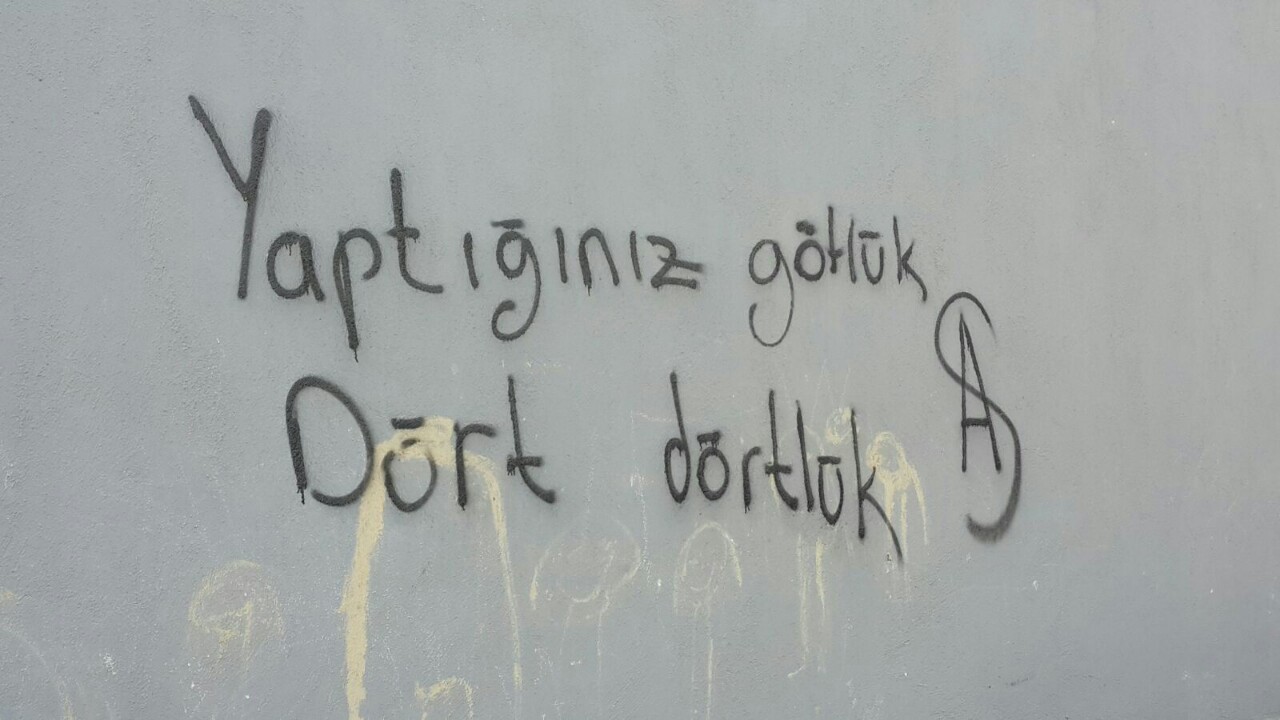 Yaptığınız götlük
Dört dörtlük